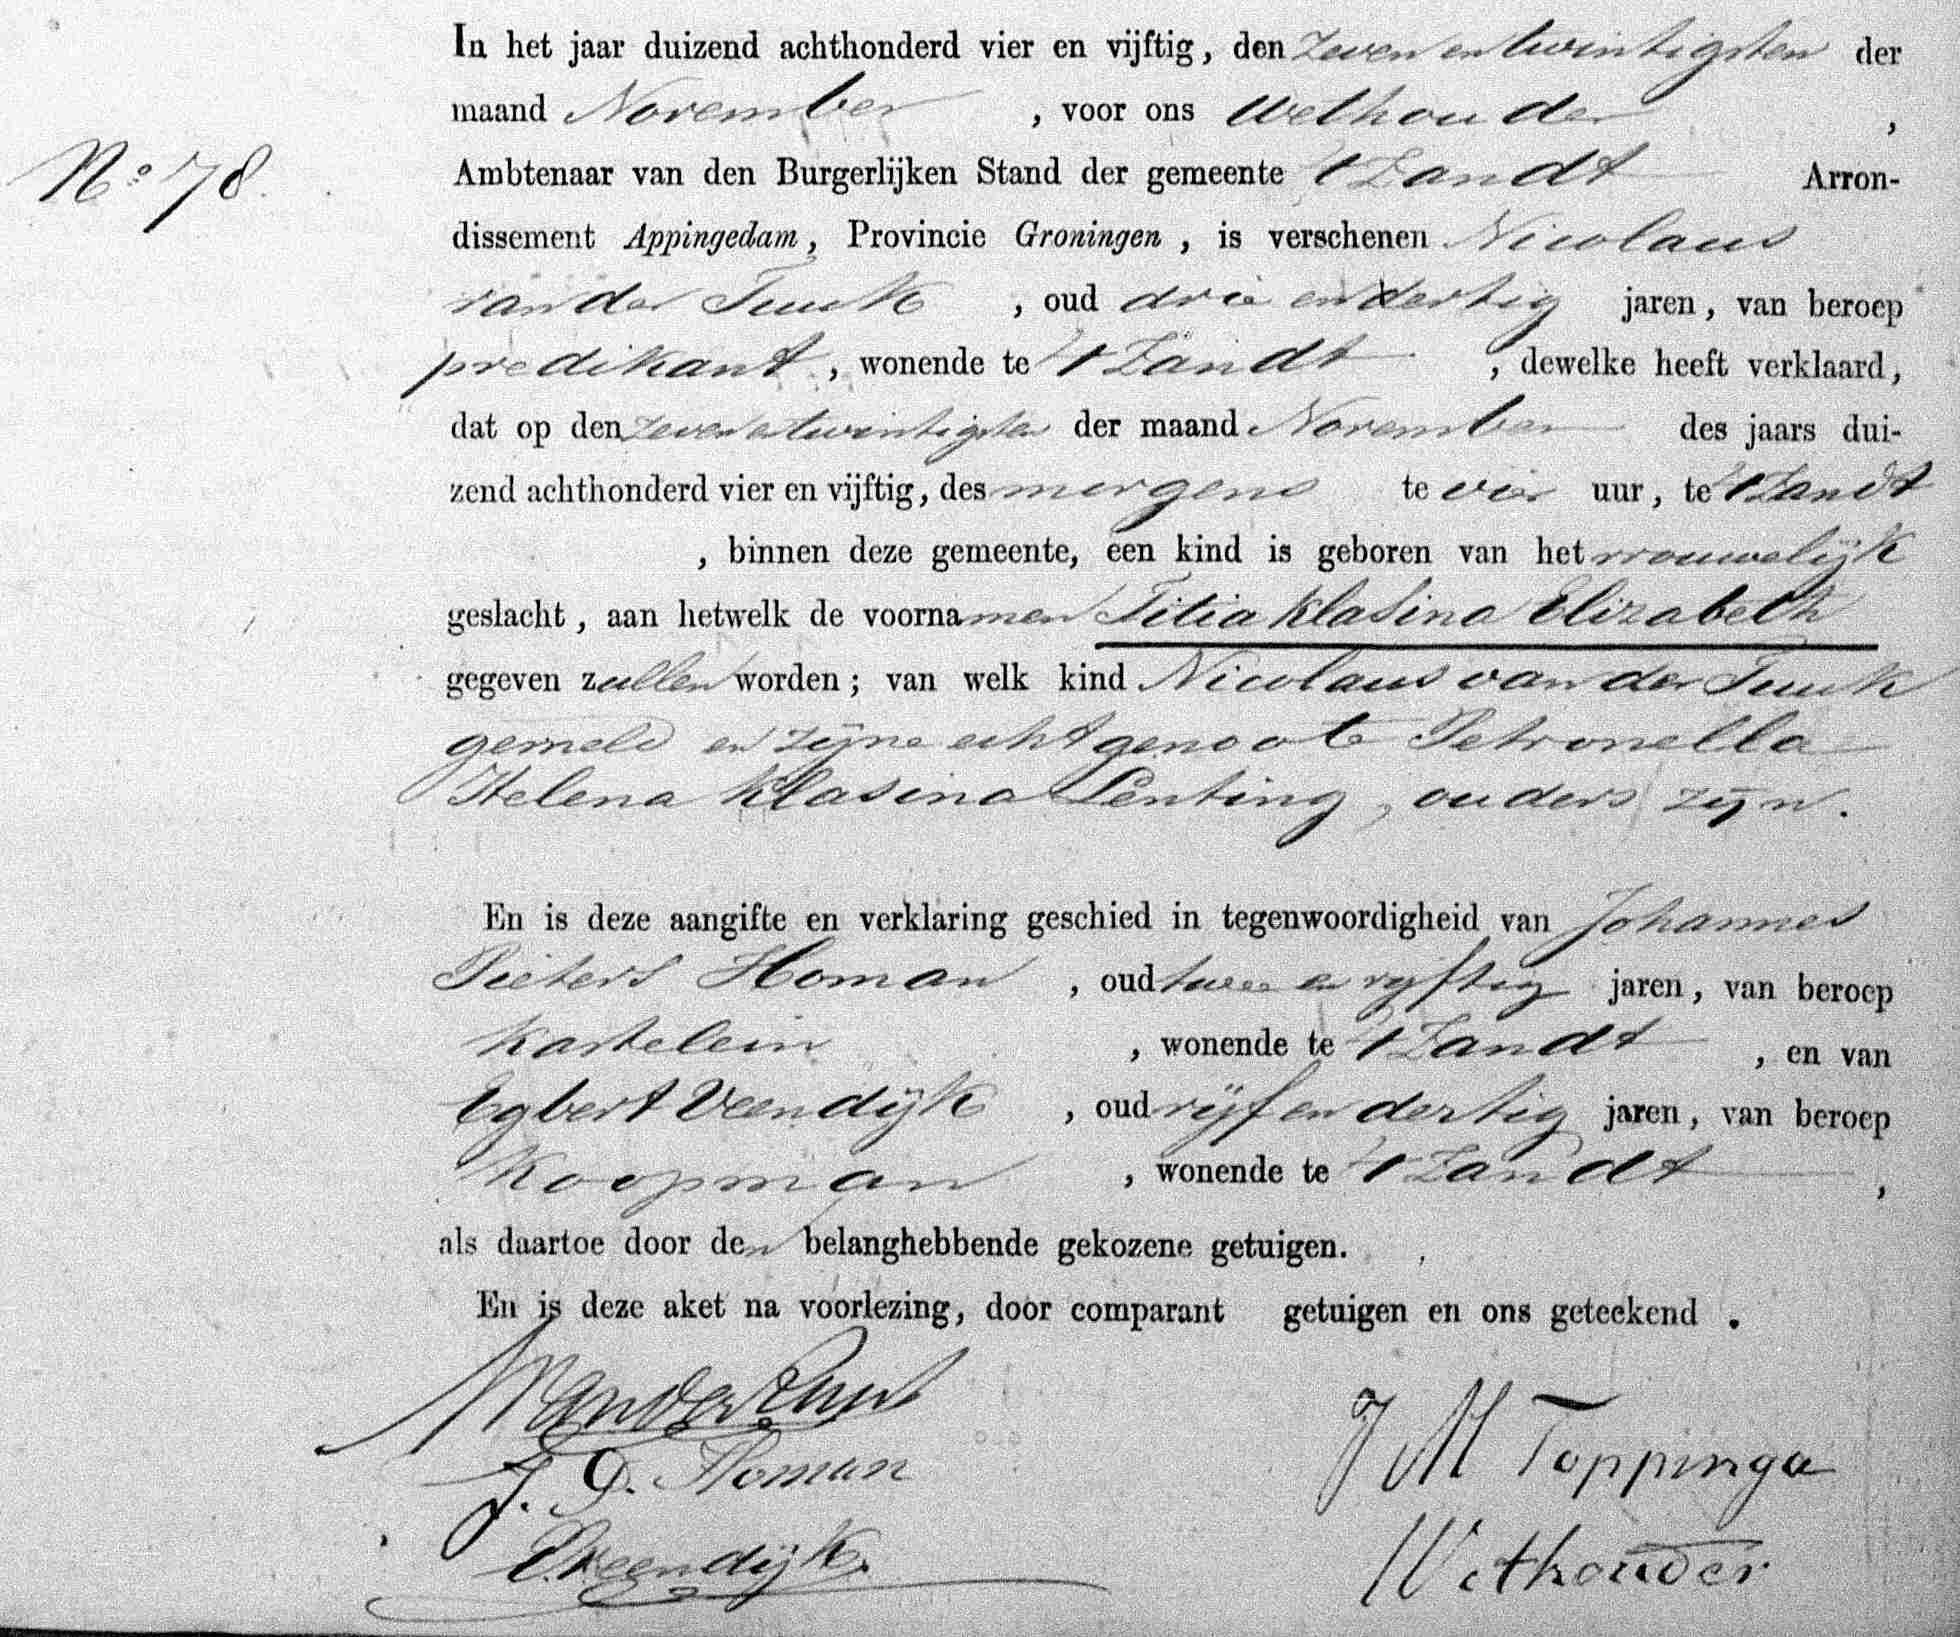 In het jaar duizend achthonderd vier en vijftig, den zeven en twintigsten der
maand November, voor ons Wethouder,
No 78.
Ambtenaar van den Burgerlijken Stand der gemeente 't Zandt Arron-
dissement Appingedam, Provincie Groningen, is verschenen Nicolaus
van der Tuuk, oud drie en dertig jaren, van beroep
predikant, wonende te 't Zandt, dewelke heeft verklaard,
dat op den zeven en twintigsten der maand November des jaars dui-
zend achthonderd vier en vijftig, des morgens te vier uur, te 't Zandt
, binnen deze gemeente, een kind is geboren van het vrouwelijk
geslacht, aan hetwelk de voornamen Titia Klasina Elizabeth
gegeven zullen worden; van welk kind Nicolaus van der Tuuk
gemeld en zijne echtgenoote Petronella
Helena Klasina Lenting, ouders zijn.
En is deze aangifte en verklaring geschied in tegenwoordigheid van Johannes
Pieters Homan, oud twee en vijftig jaren, van beroep
kastelein, wonende te 't Zandt, en van
Egbert Veendijk, oud vijf en dertig jaren, van beroep
Koopman, wonende te 't Zandt,
als daartoe door den belanghebbende gekozene getuigen.
En is deze aket na voorlezing, door comparant getuigen en ons geteekend.
NvanderTuuk
J. P. Homan
E Veendijk.
J M Toppinga
Wethouder